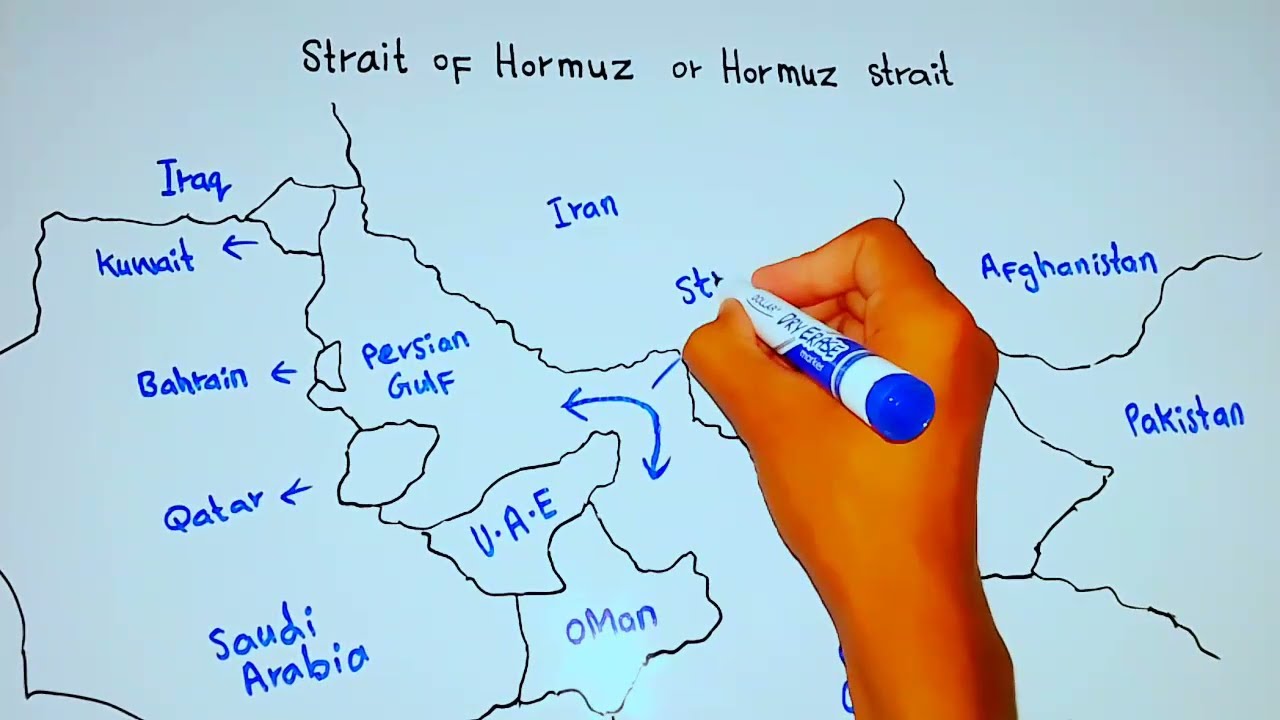 Strait of Hormuz or Hormuz strait
Iraq
Iran
Kuwait
Afghanistan
Persian
Gulf
Bahrain
Pakistan
Qatar
U.A.E
Saudi
Arabia
OMan
DRY ERASE
marker